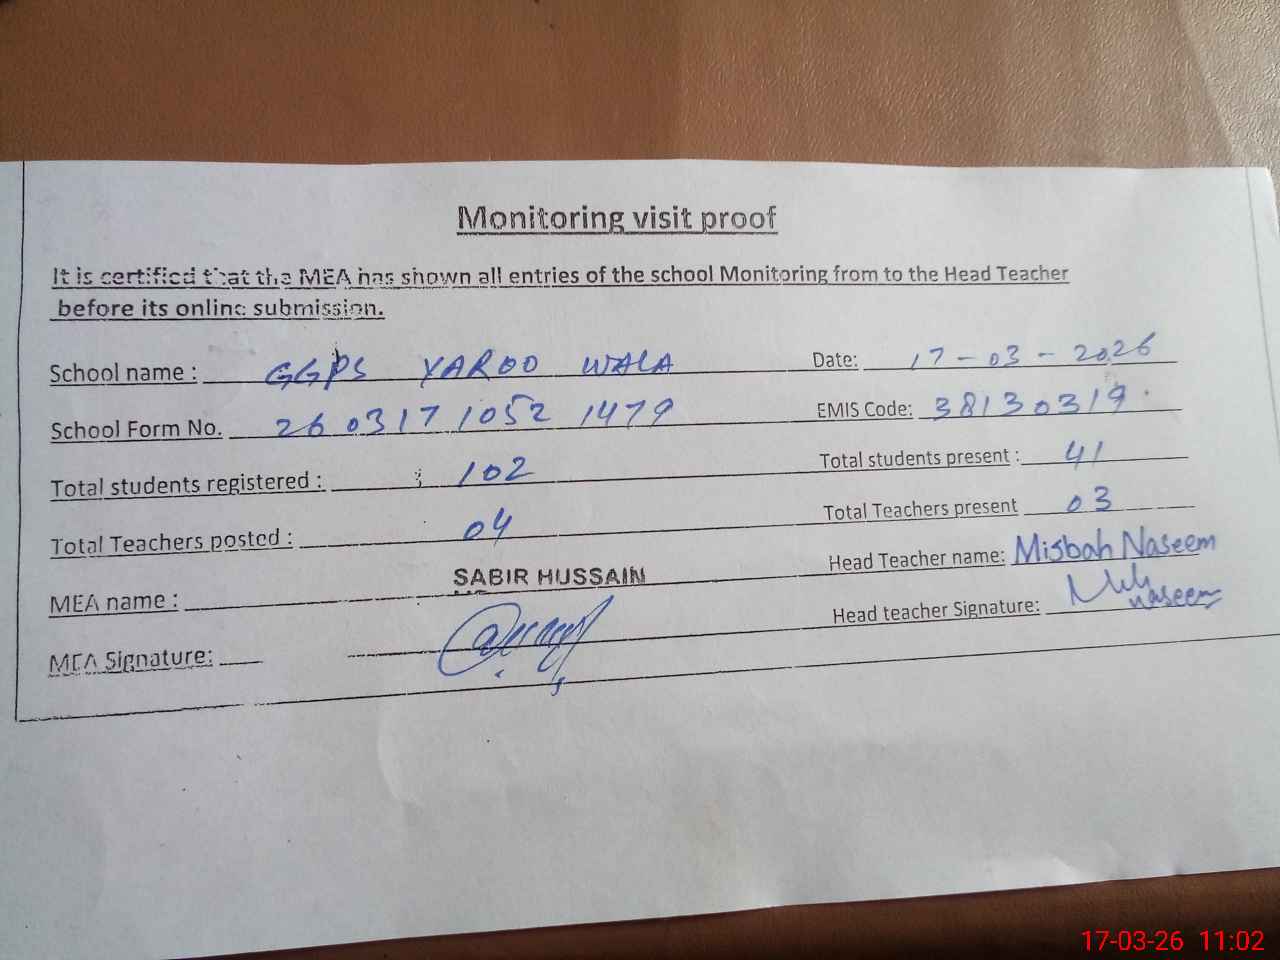 Monitoring visit proof
It is certified that the MEA has shown all entries of the school Monitoring from to the Head Teacher
before its online submission.
School name : GGPS YAROO WALA Date: 17-03-2026
School Form No. 26 0317 1052 1479 EMIS Code: 38130319
Total students registered : 102 Total students present : 41
Total Teachers posted : 04 Total Teachers present 03
MEA name : SABIR HUSSAIN Head Teacher name: Misbah Naseem
MEA Signature: Head teacher Signature: Naseem
17-03-26 11:02